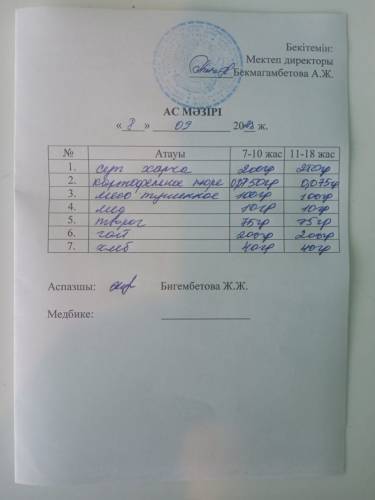 Бекітемін:
Мектеп директоры
Бекмагамбетова А.Ж.
АС МӘЗІРІ
« 8 » 09 20 ж.
№ Атауы 7-10 жас 11-18 жас
1. суп харчо 200гр 250гр
2. картофельное пюре 0,0750гр 0,075гр
3. мясо тушенное 100гр 100гр
4. мед 10гр 10гр
5. творог 75гр 75гр
6. чай 200гр 200гр
7. хлеб 40гр 40гр
Аспазшы: Бигембетова Ж.Ж.
Медбике: